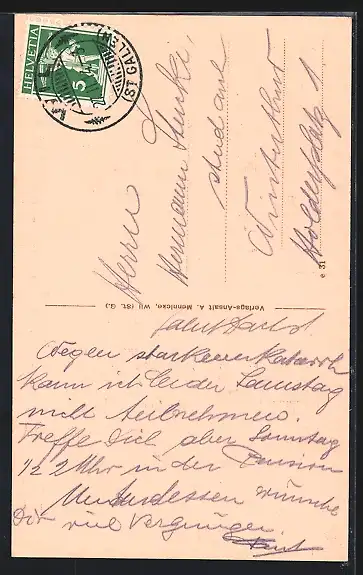 HELVETIA
5
(ST. GALLEN)
Herrn
Hermann Stucki,
stud
Winterthur
Holderplatz 1
e 31
Verlags-Anstalt A. Mennicke, Wil (St. G.)
Wegen starkem Katarrh
kann ich leider Samstag
nicht teilnehmen.
Treffe Dich aber Sonntag
1/2 2 Uhr in der Pension
Unterdessen wünsche
Dir viel Vergnügen